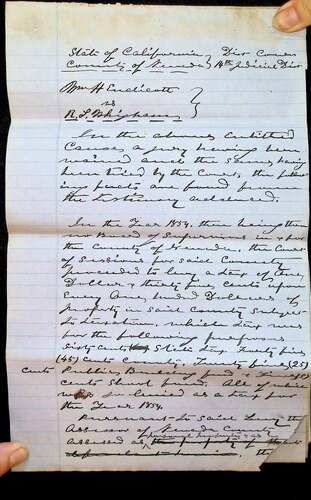 State of California } Dist Court
County of Nevada } 14th Judicial Dist
Wm H Endicott
vs
R. S. Whigham
In the above entitled
Cause, a jury having been
waived and the same having
been tried by the Court, the follow
ing facts are found from
the testimony adduced.
In the Year 1854, there being then
no Board of Supervisors in & for
the County of Nevada, the Court
of Sessions for said County
proceeded to levy a tax of One
Dollar & thirty five cents upon
Every One hundred Dollars of
property in said County Subject
to taxation, which tax was
for the following purposes
Sixty cents State tax, Forty five
(45) cents County, Twenty five (25)
cents Public Building fund &
cents School fund. All of which
was so levied as a tax for
the Year 1854.
Pursuant to said levy the
Assessor of Nevada County
assessed as the property of the
the